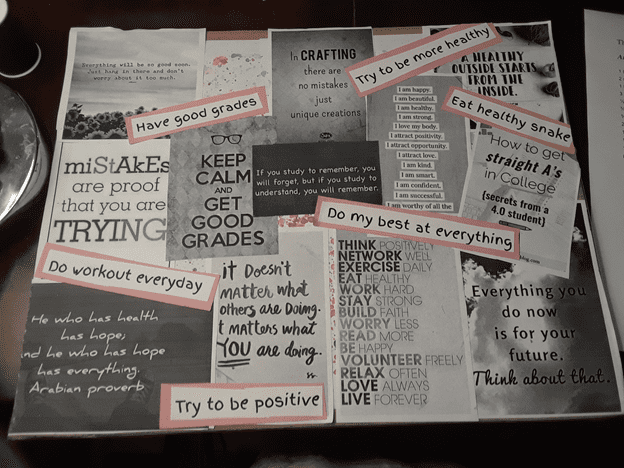 Everything will be so good soon.
Just hang in there and don't
worry about it too much.
In CRAFTING
there are
no mistakes
just
unique creations
Try to be more healthy
A HEALTHY
OUTSIDE STARTS
FROM THE
INSIDE.
Have good grades
I am happy.
I am beautiful.
I am healthy.
I am strong.
I love my body.
I attract positivity.
I attract opportunity.
I attract love.
I am kind.
I am smart.
I am confident.
I am successful.
I am worthy of all the
Eat healthy snake
How to get
straight A's
in College
(secrets from a
4.0 student)
miStAkEs
are proof
that you are
TRYING
KEEP
CALM
AND
GET
GOOD
GRADES
If you study to remember, you
will forget, but if you study to
understand, you will remember.
Do my best at everything
Do workout everyday
iT DOESN'T
MATTER WHAT
others are DOING.
IT MATTERS WHAT
YOU are doing.
THINK POSITIVELY
NETWORK WELL
EXERCISE DAILY
EAT HEALTHY
WORK HARD
STAY STRONG
BUILD FAITH
WORRY LESS
READ MORE
BE HAPPY
VOLUNTEER FREELY
RELAX OFTEN
LOVE ALWAYS
LIVE FOREVER
Everything you
do now
is for your
future.
Think about that.
He who has health
has hope;
nd he who has hope
has everything.
Arabian proverb
Try to be positive